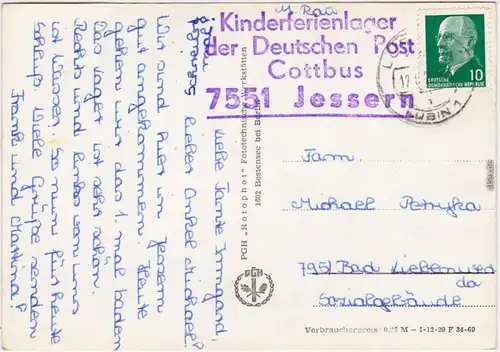 Jessern,
Liebe Tante Irmgard,
lieber Onkel Michael!
Wir sind hier in Jessern
gut angekommen. Heute
gehen wir das 1. mal baden
Das Lager ist sehr schön.
Rechts und links von uns
ist Wasser. So nun für heute
Schluß. Viele Grüße senden
Frank und Martina!
PGH „Rotophot“ Fototechnische Werkstätten
1602 Bestensee bei Berlin
PGH
Kinderferienlager
der Deutschen Post
Cottbus
7551 Jessern
DEUTSCHE
DEMOKRATISCHE REPUBLIK
10
Fam.
Michael Petryka
7951 Bad Liebenwerda
Sozialgebäude
Verbraucherpreis: 0,25 M – I-12-20 F 34-69